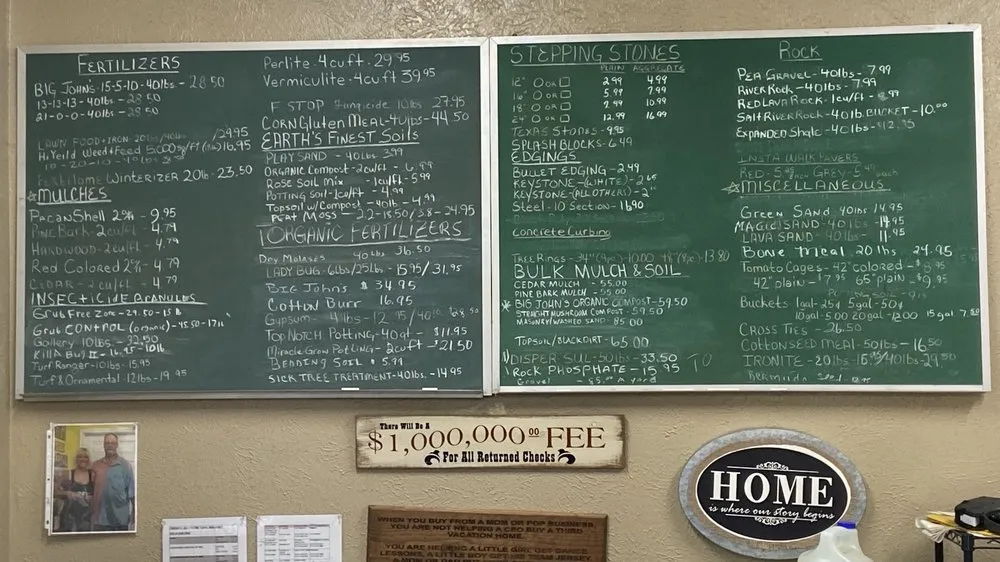 FERTILIZERS
BIG JOHN'S-15-5-10-40lbs-28.50
13-13-13-40lbs-28.50
21-0-0-40lbs-28.50
LAWN FOOD+IRON-20lbs/40lbs /29.95
Hi Yield Weed+Feed 5,000sq/ft 16.95
Fertilome Winterizer 20lb-23.50
☆MULCHES
Pacan Shell 2cu/ft-9.95
Pine Bark-2cu/ft-4.79
Hardwood-2cu/ft-4.79
Red Colored 2cu/ft-4.79
CEDAR-2cu/ft-4.79
INSECTICIDE GRANULES
Grub Free Zone-29.50-15lb
Grub CONTROL (organic)-45.50-17lb
Gallery 10lbs-32.50
Kill A Bug II-16.95-10lb
Turf Ranger-10lbs-15.95
Turf & Ornamental 12lbs-19.95
Perlite-4cuft-29.95
Vermiculite-4cuft 39.95
F STOP Fungicide 10lbs 27.95
CORN Gluten MEAL-40lbs-44.50
EARTH'S FINEST Soils
PLAY SAND-40lbs 3.99
ORGANIC Compost-2cu/ft-6.99
Rose Soil Mix -1cu/ft-5.99
Potting Soil-1cu/ft-4.99
Topsoil w/Compost-40lb-4.99
PEAT MOSS-2.2-15.50/3.8-24.95
ORGANIC FERTILIZERS
Dry Molases 40lbs 36.50
LADY BUG-6lbs/25lbs-15.95/31.95
BIG Johns $34.95
COTTON Burr 16.95
Gypsum-4lbs-12.95/40lbs
TOP NOTCH Potting-40qt-$11.95
Miracle Grow Potting-2cuft-$21.50
BEDDING SOIL $5.99
SICK TREE TREATMENT-40lbs-14.95
STEPPING STONES
PLAIN AGGREGATE
12" O OR □ 2.99 4.99
16" O OR □ 5.99 7.99
18" O OR □ 7.99 10.99
24" O OR □ 12.99 16.99
TEXAS STONES-9.95
SPLASH BLOCKS-6.49
EDGINGS
BULLET EDGING-2.49
KEYSTONE-(WHITE)-2.65
KEYSTONE-(ALL OTHERS)-2.
Steel-10 Section-16.90
Concrete Curbing
TREE RINGS-34"(4pc)-10.00 48"(8pc)-13.80
BULK MULCH & SOIL
CEDAR MULCH-55.00
PINE BARK MULCH-55.00
BIG JOHN'S ORGANIC COMPOST-59.50
STRAIGHT MUSHROOM COMPOST-59.50
MASONRY/WASHED SAND-85.00
TOPSOIL/BLACKDIRT-65.00
DISPER SUL-50lbs-33.50 TO
ROCK PHOSPHATE-15.95
Gravel -85.00 A yard
ROCK
PEA GRAVEL-40lbs-7.99
RIVER ROCK-40lbs-7.99
RED LAVA ROCK-1cu/ft-8.99
SALT RIVER ROCK-40lb.BUCKET-10.00
EXPANDED Shale-40lbs-$12.95
INSTA WALK PAVERS
RED-5.95 GREY-5.49 each
☆MISCELLANEOUS
GREEN SAND 40lbs 14.95
MAGIC SAND-40lbs-14.95
LAVA SAND-40lbs-11.95
BONE MEAL 20lbs 24.95
TOMATO CAGES-42"colored-$8.95
42"plain-$7.95 65"plain-$9.95
Buckets 1gal-25¢ 5gal-50¢
10gal-5.00 20gal-12.00 15gal 7.50
CROSS TIES-26.50
COTTONSEED MEAL-50lbs-16.50
IRONITE-20lbs-15.95/40lbs-29.50
Bermuda Seed
There Will Be A
$1,000,000.00 FEE
For All Returned Checks
HOME
is where our story begins
WHEN YOU BUY FROM A MOM OR POP BUSINESS,
YOU ARE NOT HELPING A CEO BUY A THIRD
VACATION HOME.
YOU ARE HELPING A LITTLE GIRL GET DANCE
LESSONS, A LITTLE BOY GET HIS TEAM JERSEY